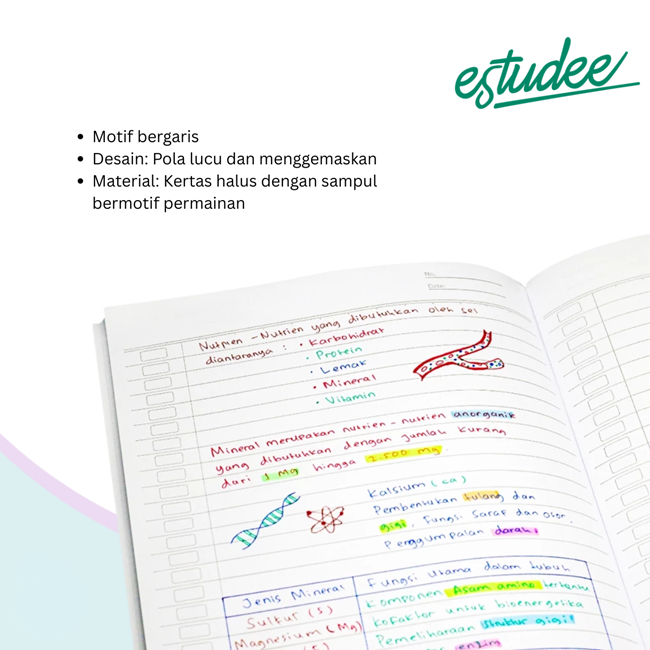 estudee
• Motif bergaris
• Desain: Pola lucu dan menggemaskan
• Material: Kertas halus dengan sampul
bermotif permainan
No.
Date
Nutrien - Nutrien yang dibutuhkan oleh sel
diantaranya : • Karbohidrat
• Protein
• Lemak
• Mineral
• Vitamin
Mineral merupakan nutrien - nutrien anorganik
yang dibutuhkan dengan jumlah kurang
dari 1 Mg hingga 2.500 mg.
Kalsium (Ca)
Pembentukan tulang dan
gigi, fungsi saraf dan otot,
Penggumpalan darah
Jenis Mineral Fungsi utama dalam tubuh
Sulfur (S) Komponen Asam amino tertentu
Magnesium (Mg) Kofaktor untuk bioenergetika
Pemeliharaan struktur gigi
enzim